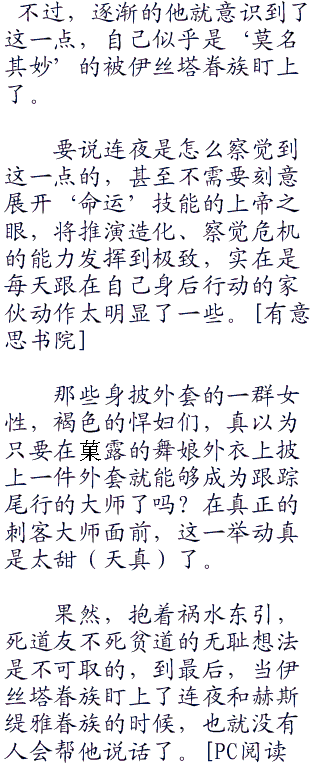 不过，逐渐的他就意识到了
这一点，自己似乎是‘莫名
其妙’的被伊丝塔眷族盯上
了。
要说连夜是怎么察觉到
这一点的，甚至不需要刻意
展开‘命运’技能的上帝之
眼，将推演造化、察觉危机
的能力发挥到极致，实在是
每天跟在自己身后行动的家
伙动作太明显了一些。[有意
思书院]
那些身披外套的一群女
性，褐色的悍妇们，真以为
只要在菓露的舞娘外衣上披
上一件外套就能够成为跟踪
尾行的大师了吗？在真正的
刺客大师面前，这一举动真
是太甜（天真）了。
果然，抱着祸水东引，
死道友不死贫道的无耻想法
是不可取的，到最后，当伊
丝塔眷族盯上了连夜和赫斯
缇雅眷族的时候，也就没有
人会帮他说话了。[PC阅读